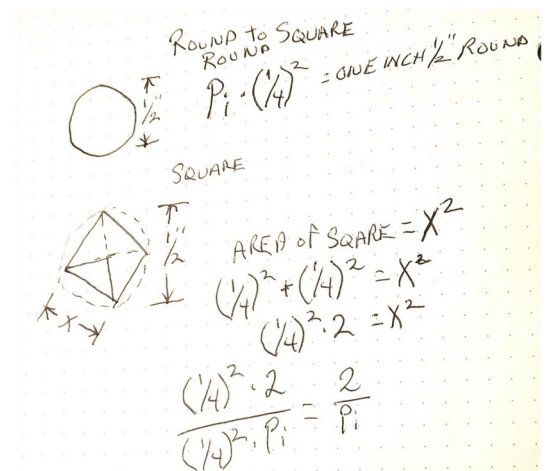 ROUND TO SQUARE
ROUND
Pi · (1/4)² = ONE INCH 1/2" ROUND
1/2"
SQUARE
1/2"
X
AREA OF SQARE = X²
(1/4)² + (1/4)² = X²
(1/4)² · 2 = X²
(1/4)² · 2 / (1/4)² · Pi = 2 / Pi